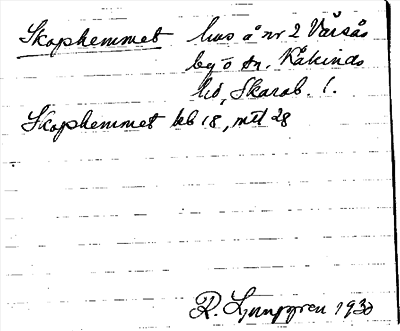 Skophemmet hus å nr 2 Vårsås
by o sn. Kåkinds
hd, Skarab. l.
Skophemmet kb 18, mtl 28
R. Ljunggren 1930